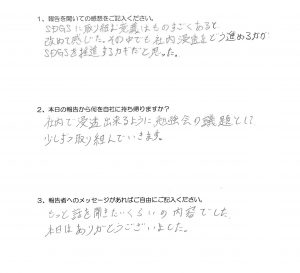 1、報告を聞いての感想をご記入ください。
SDGSに取り組む意義はものすごくあると
改めて感じた。その中でも社内浸透をどう進めるかが
SDGSを推進するカギだと思った。
2、本日の報告から何を自社に持ち帰りますか?
社内で浸透出来るように勉強会の議題として
少しずつ取り組んでいきます。
3、報告者へのメッセージがあればご自由にご記入ください。
もっと話を聞きたいくらいの内容でした
本日はありがとうございました。